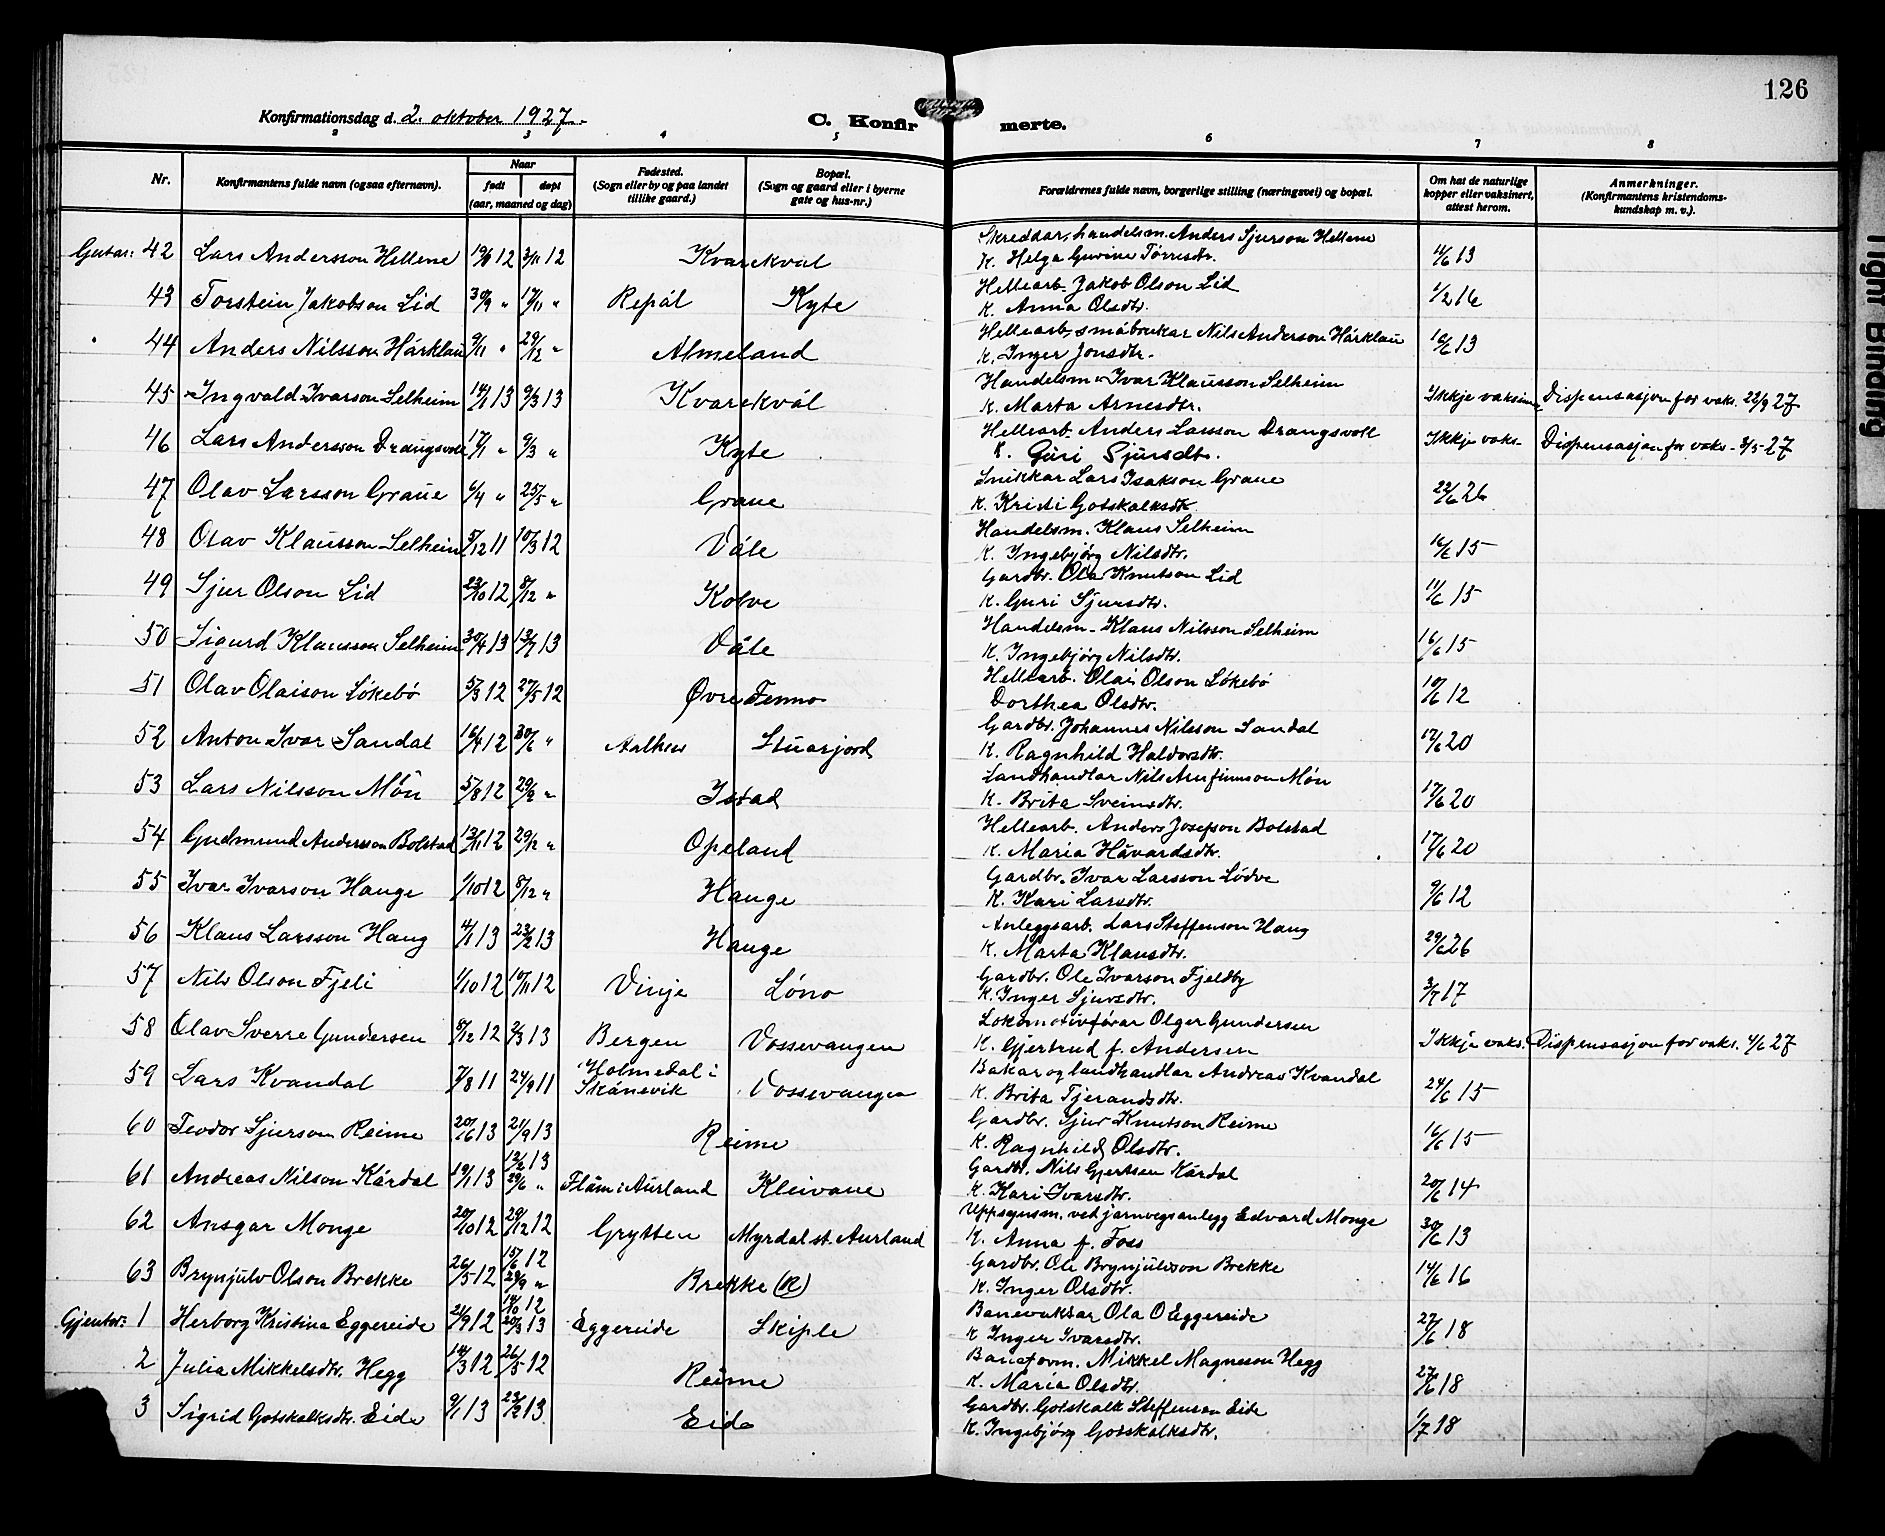 126
Konfirmationsdag d. 2. oktober 1927.
C. Konfirmerte.
2 3 4 5 6 7 8
Nr. Konfirmantens fulde navn (ogsaa efternavn). Naar født døpt (aar, maaned og dag) Fødested. (Sogn eller by og paa landet tillike gaard.) Bopæl. (Sogn og gaard eller i byerne gate og hus-nr.) Forældrenes fulde navn, borgerlige stilling (næringsvei) og bopæl. Om hat de naturlige kopper eller vaksinert, attest herom. Anmerkninger. (Konfirmantens kristendoms-kundskap m. v.).
Gutar: 42 Lars Andersson Hellene 3/11 12 Kvarekvål Skreddar, handelsm. Anders Sjurson Hellene
K. Helga Gurine Tørresdtr. 13
43 Torstein Jakobson Lid 30/9 " 17/11 " Repål Kyte Hellearb. Jakob Olson Lid
K. Anna Olsdtr. 1/2 16
44 Anders Nilsson Hårklau 9/11 " 29/12 " Almeland Hellearb, småbrukar Nils Anderson Hårklau
K. Inger Jonsdtr. 16/6 13
45 Ingvald Ivarson Selheim 14/1 13 9/3 13 Kvarekvål Handelsm. Ivar Klausson Selheim
K. Marta Arnesdtr. Ikkje vaksine Dispensasjon for vaks. 22/9 27
46 Lars Andersson Drangsvoll 17/1 " 9/3 " Kyte Hellearb. Anders Larsson Drangsvoll
K. Guri Sjursdtr. Ikkje vaks. Dispensasjon for vaks. 3/5 27
47 Olav Larsson Graue 6/4 " 25/5 " Graue Snikkar Lars Isakson Graue
K. Kristi Gotskalksdtr. 22/6 26
48 Olav Klausson Selheim 5/12 11 10/3 12 Våle Handelsm. Klaus Selheim
K. Ingebjørg Nilsdtr. 16/6 15
49 Sjur Olson Lid 23/10 12 8/12 " Kolve Gardbr. Ola Knutson Lid
K. Guri Sjursdtr. 11/6 15
50 Sigurd Klausson Selheim 30/4 13 13/7 13 Våle Handelsm. Klaus Nilsson Selheim
K. Ingebjørg Nilsdtr. 16/6 15
51 Olav Olaison Løkebø 5/3 12 27/5 12 Øvre Fenno Hellearb. Olai Olson Løkebø
Dorthea Olsdtr. 10/6 12
52 Anton Ivar Sandal 16/4 12 30/6 " Aalhus Gardbr. Johannes Nilsson Sandal
K. Ragnhild Haldorsdtr. 17/6 20
53 Lars Nilsson Møn 5/8 12 29/9 " Istad Landhandlar Nils Arnfinnson Møn
K. Brita Sveinsdtr. 17/6 20
54 Gudmund Andersson Bolstad 13/11 12 29/12 " Opeland Hellearb. Anders Josefson Bolstad
K. Maria Håvardsdtr. 17/6 20
55 Ivar Ivarson Hauge 1/10 12 8/12 " Hauge Gardbr. Ivar Larsson Lødve
K. Kari Larsdtr. 9/6 12
56 Klaus Larsson Haug 4/1 13 23/2 13 Hauge Anleggsarb. Lars Steffenson Haug
K. Marta Klausdtr. 29/6 26
57 Nils Olson Fjeli 1/10 12 10/11 12 Vinje Løno Gardbr. Ole Ivarson Fjeldby
K. Inger Sjursdtr. 3/7 17
58 Olav Sverre Gundersen 8/12 12 2/3 13 Bergen Vossevangen Lokomotivførar Olger Gundersen
K. Gjertrud f. Andersen Ikkje vaks. Dispensasjon for vaks. 4/6 27
59 Lars Kvandal 7/8 11 24/9 11 Holmedal i Skånevik Vossevangen Bakar og landhandlar Andreas Kvandal
K. Brita Tjerandsdtr. 24/6 15
60 Teodor Sjurson Reime 20/6 13 21/9 13 Reime Gardbr. Sjur Knutson Reime
K. Ragnhild Olsdtr. 16/6 15
61 Andreas Nilson Kårdal 19/1 13 12/2 13 29/6 " Flåm i Aurland Kleivane Gardbr. Nils Gjertsen Kårdal
K. Kari Ivarsdtr. 20/6 14
62 Ansgar Monge 20/10 12 29/12 12 Grytten Myrdal st. Aurland Uppsynsm. ved jarnvegsanlegg Edvard Monge
K. Anna f. Foss 30/6 13
63 Brynjulv Olson Brekke 26/5 12 15/6 12 29/9 " Brekke (R) Gardbr. Ole Brynjulvson Brekke
K. Inger Olsdtr. 14/6 16
Gjentor: 1 Herborg Kristina Eggereide 21/9 12 14/10 12 20/3 13 Eggereide Skiple Banevaktar Ola O Eggereide
K Inger Ivarsdtr. 27/6 18
2 Julia Mikkelsdtr. Hegg 14/3 12 26/5 12 Reime Baneform. Mikkel Magneson Hegg
K. Maria Olsdtr. 27/6 18
3 Sigrid Gotskalksdtr. Eide 9/1 13 23/2 13. Eide Gardbr. Gotskalk Steffenson Eide
K. Ingebjørg Gotskalksdtr. 1/7 18
Tight Binding